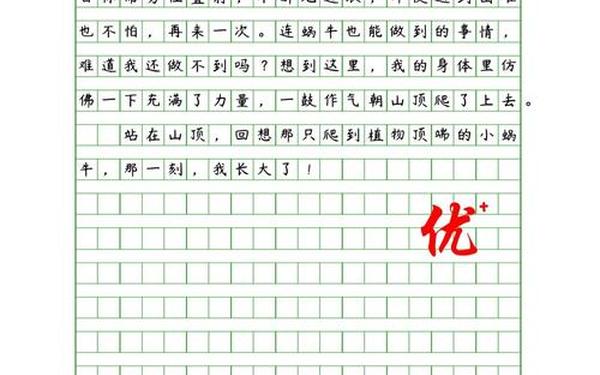 也不怕，再来一次。连蜗牛也能做到的事情，
难道我还做不到吗？想到这里，我的身体里仿
佛一下充满了力量，一鼓作气朝山顶爬了上去。
站在山顶，回想那只爬到植物顶端的小蜗
牛，那一刻，我长大了！
优+